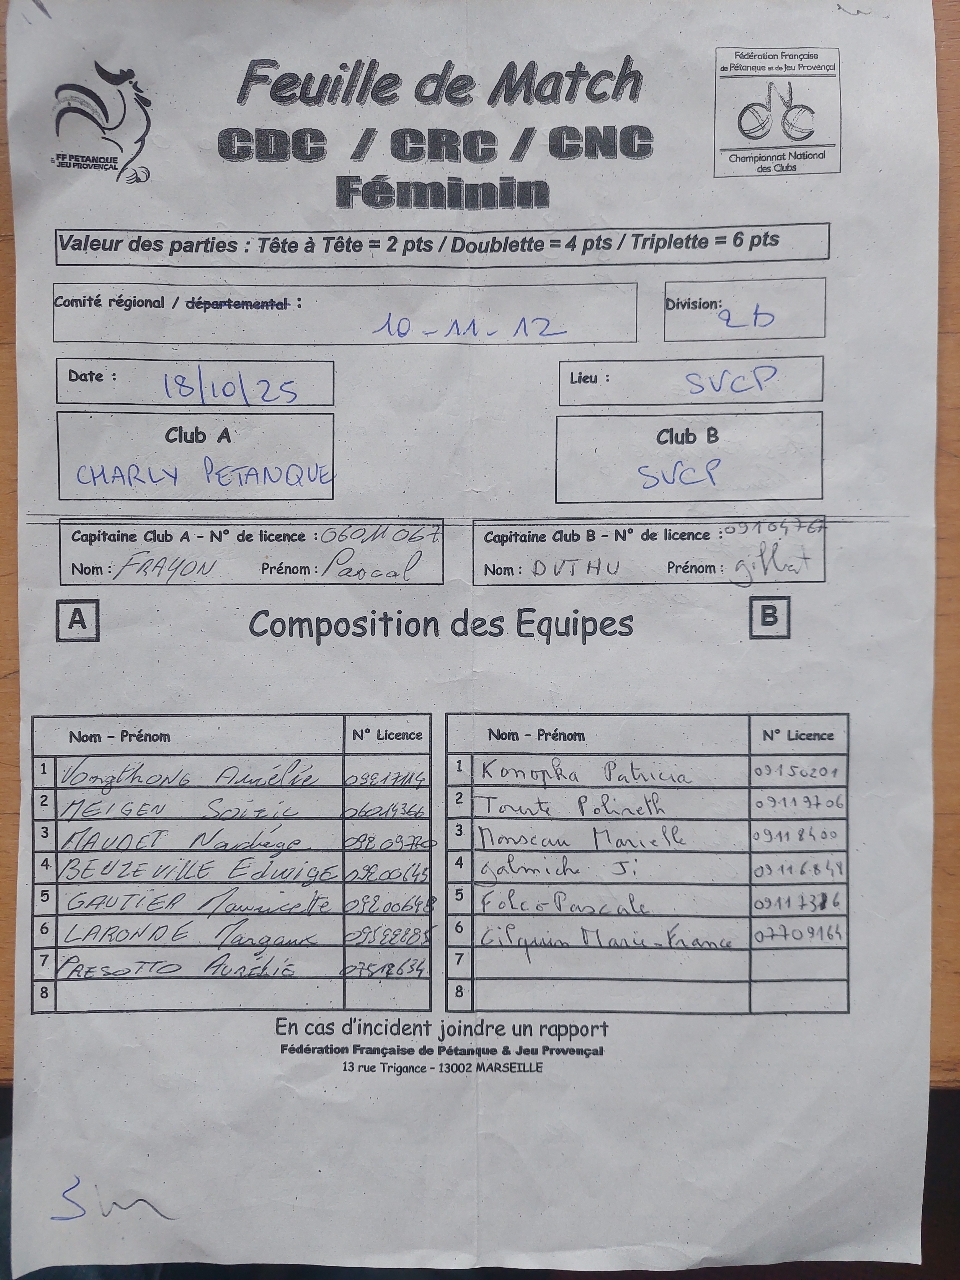 Feuille de Match
CDC / CRC / CNC
Féminin
FF PETANQUE
JEU PROVENÇAL
Fédération Française
de Pétanque et de Jeu Provençal
Championnat National
des Clubs
Valeur des parties : Tête à Tête = 2 pts / Doublette = 4 pts / Triplette = 6 pts
Comité régional / départemental : 10-11-12
Division: 2b
Date : 18/10/25
Lieu : SVCP
Club A
CHARLY PETANQUE
Club B
SVCP
Capitaine Club A - N° de licence : 06011067
Nom : FRAYON Prénom : Pascal
Capitaine Club B - N° de licence : 09104767
Nom : DUTHU Prénom : gilbert
A
Composition des Equipes
B
Nom - Prénom N° Licence
1 VongThONG Aurélie
2 MEIGEN Soizic
3 MAUDET Nadège
4 BEUZEVILLE Edwige 09200645
5 GAUTIER Mauricette
6 LARONDE Margaux
7 PRESOTTO AURÉLIE 07512634
8
Nom - Prénom N° Licence
1 Konopka Patricia 09150201
2 Tourte Polineth 09119706
3 Monseau Marielle 09118400
4 galmiche Ji 09116848
5 Folco Pascale
6 Cilquin Marie-France 07709164
7
8
En cas d'incident joindre un rapport
Fédération Française de Pétanque & Jeu Provençal
13 rue Trigance - 13002 MARSEILLE